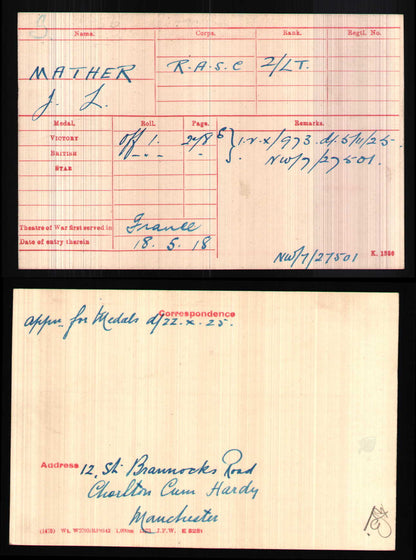 Name. Corps. Rank. Regtl. No.
MATHER R.A.S.C 2/LT.
J. L.
Medal. Roll. Page. Remarks.
VICTORY Off 1. I.V.X/973 d/5/11/25.
BRITISH NW/7/27501.
STAR
Theatre of War first served in France
Date of entry therein 18.5.18
NW/7/27501 K. 1380
Correspondence
Appn. for Medals d/22.X.25.
Address 12, St. Brannocks Road
Chorlton Cum Hardy
Manchester